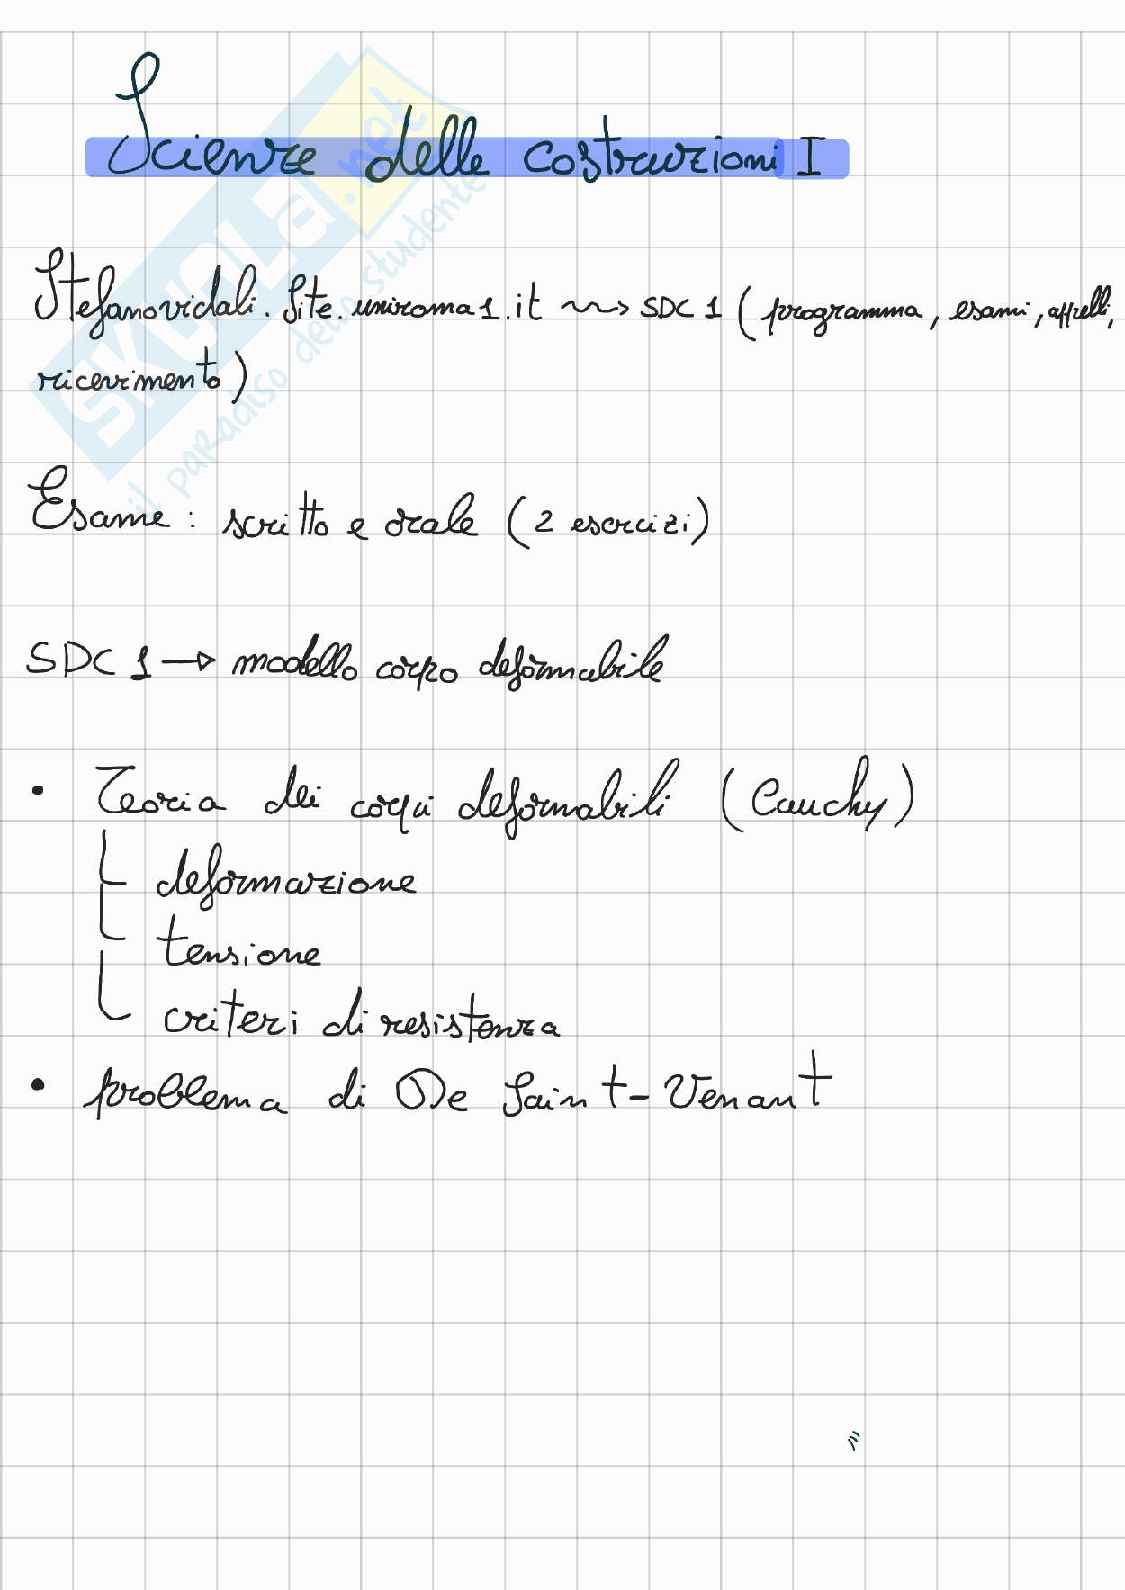 Scienze delle costruzioni I
Stefanovidali.site.uniroma1.it ~> SDC 1 (programma, esami, appelli,
ricevimento)
Esame: scritto e orale (2 esercizi)
SDC 1 → modello corpo deformabile
• Teoria dei corpi deformabili (Cauchy)
deformazione
tensione
criteri di resistenza
• problema di De Saint-Venant
SKUOLA.net
il paradiso dello studente